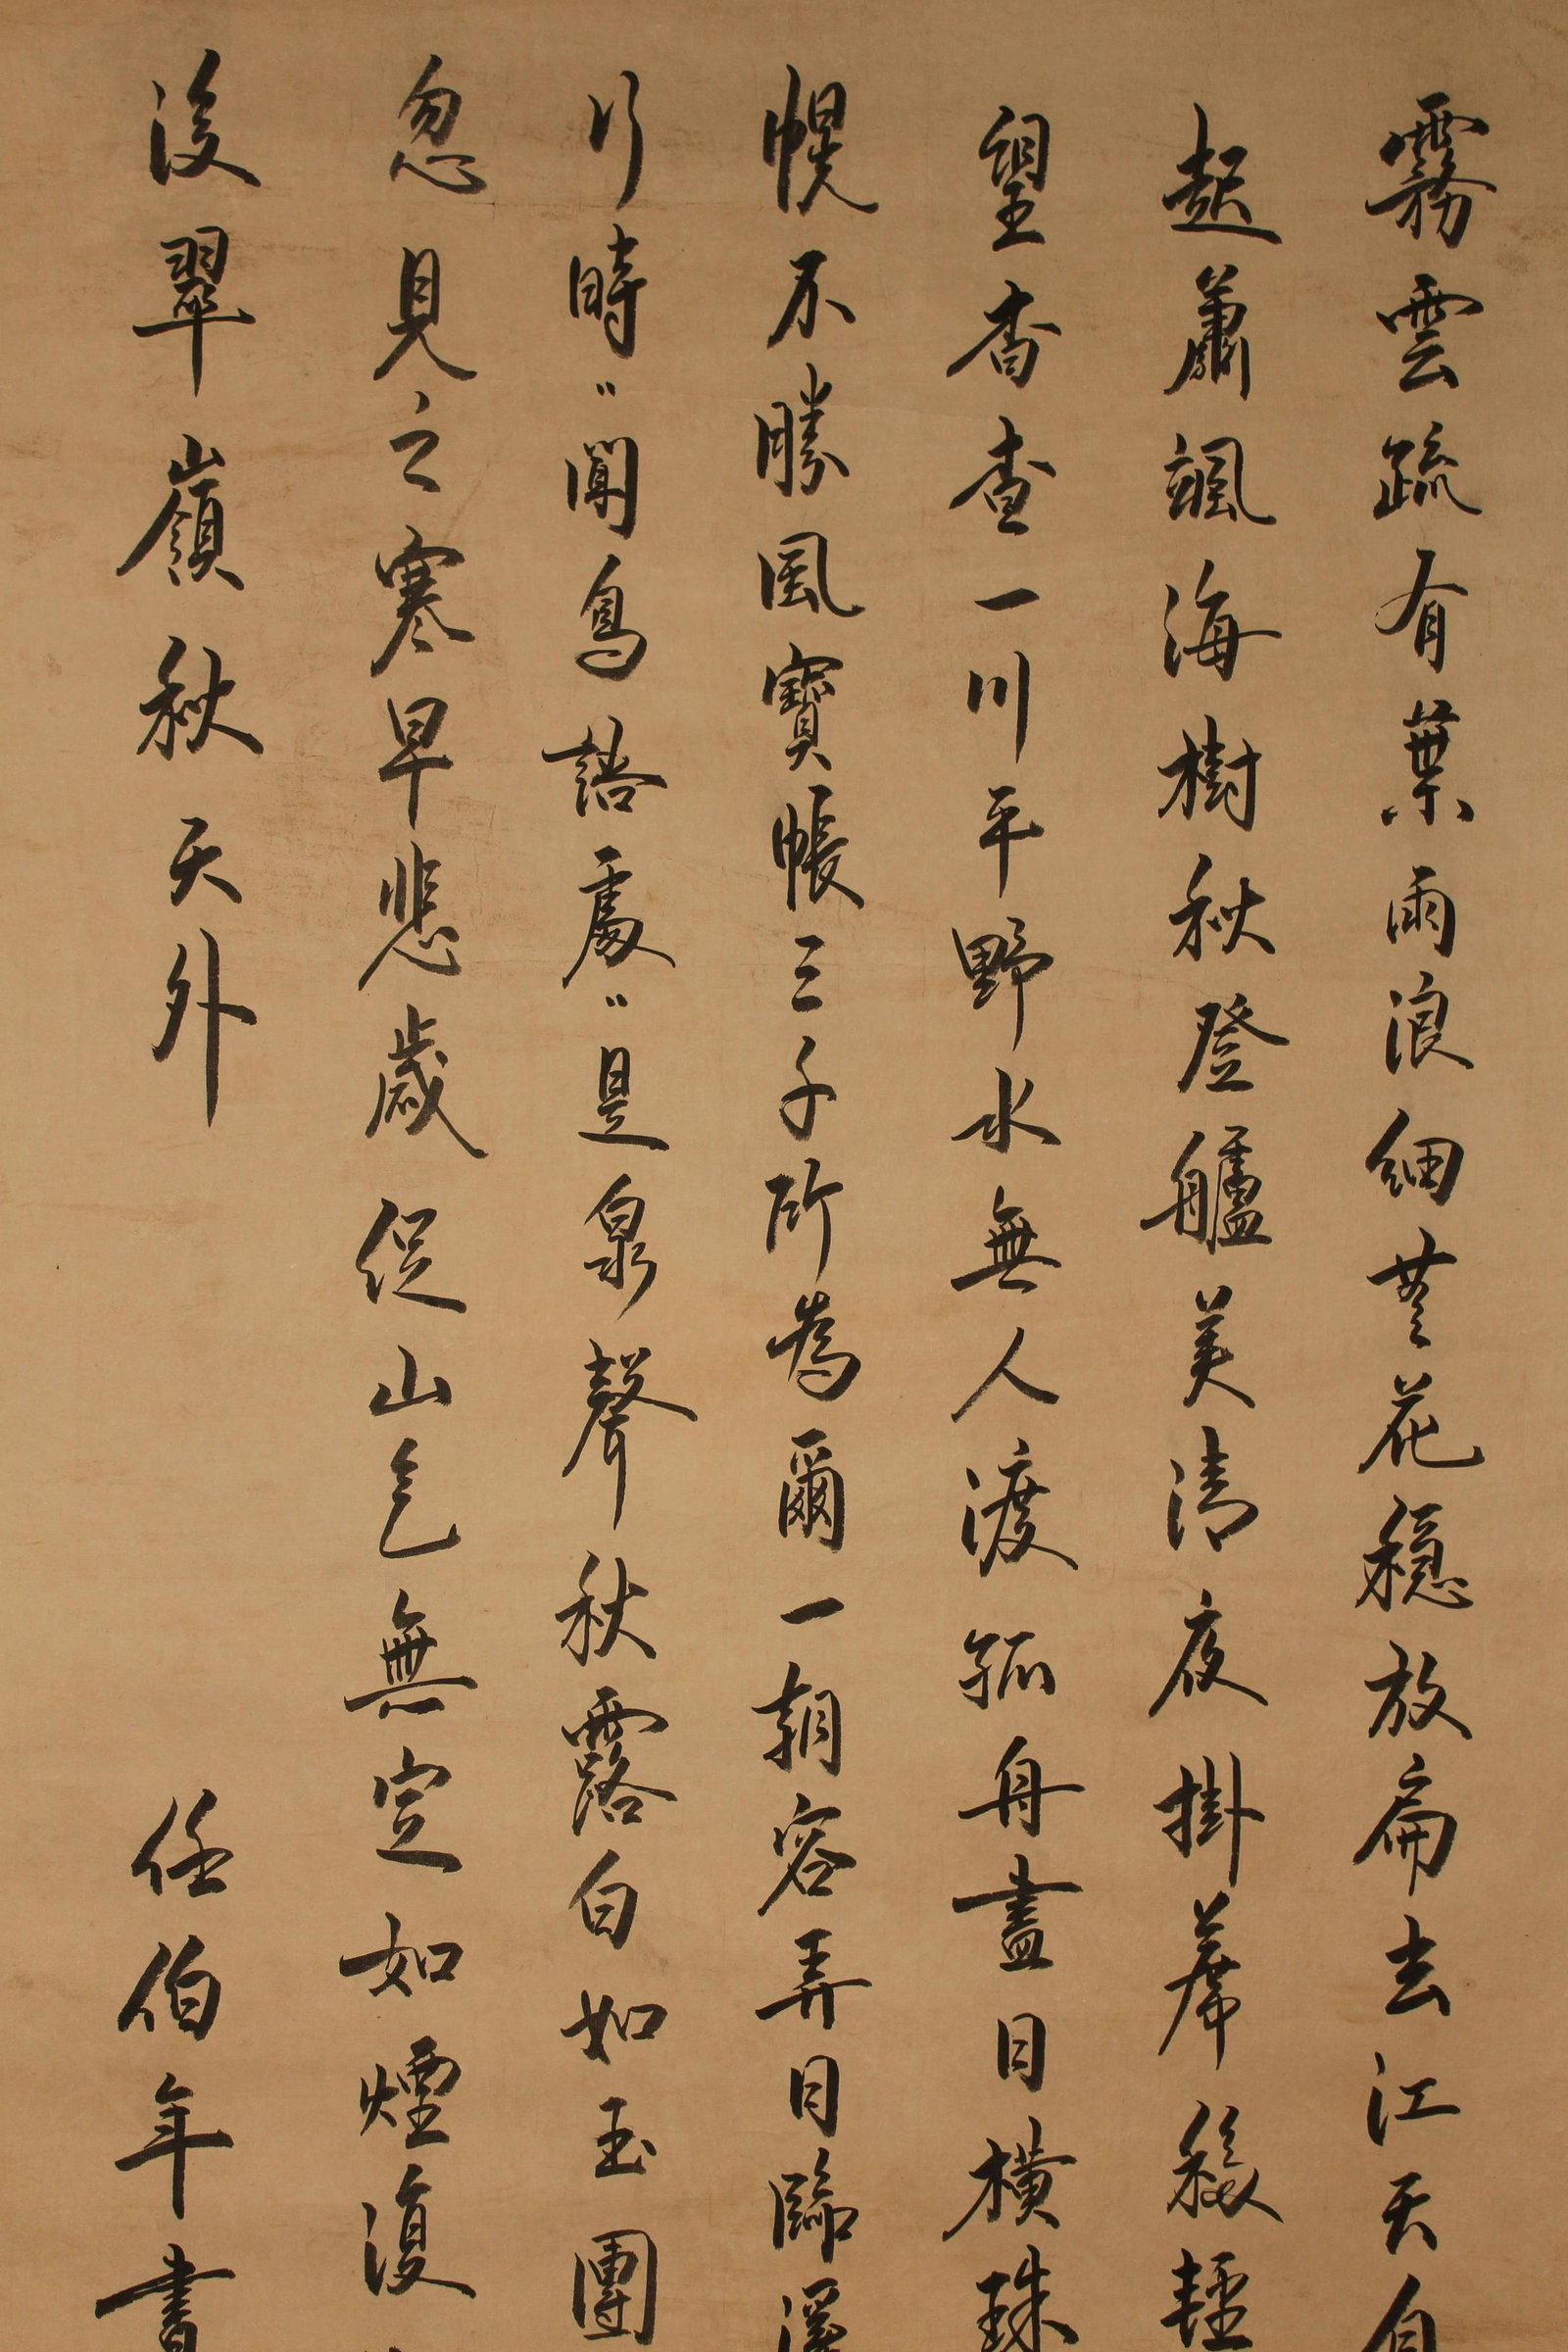 霧雲疏有葉雨浪細無花穩放扁去江天自
起蕭颯海樹秋登艫美清夜掛席移輕
望香查一川平野水無人渡孤舟盡日橫珠
幌不勝風寶帳三千所為爾一朝容弄日臨溪
行時〻聞鳥語處〻是泉聲秋露白如玉團
忽見之寒早悲歲促山气無定如煙復
後翠嶺秋天外
任伯年書